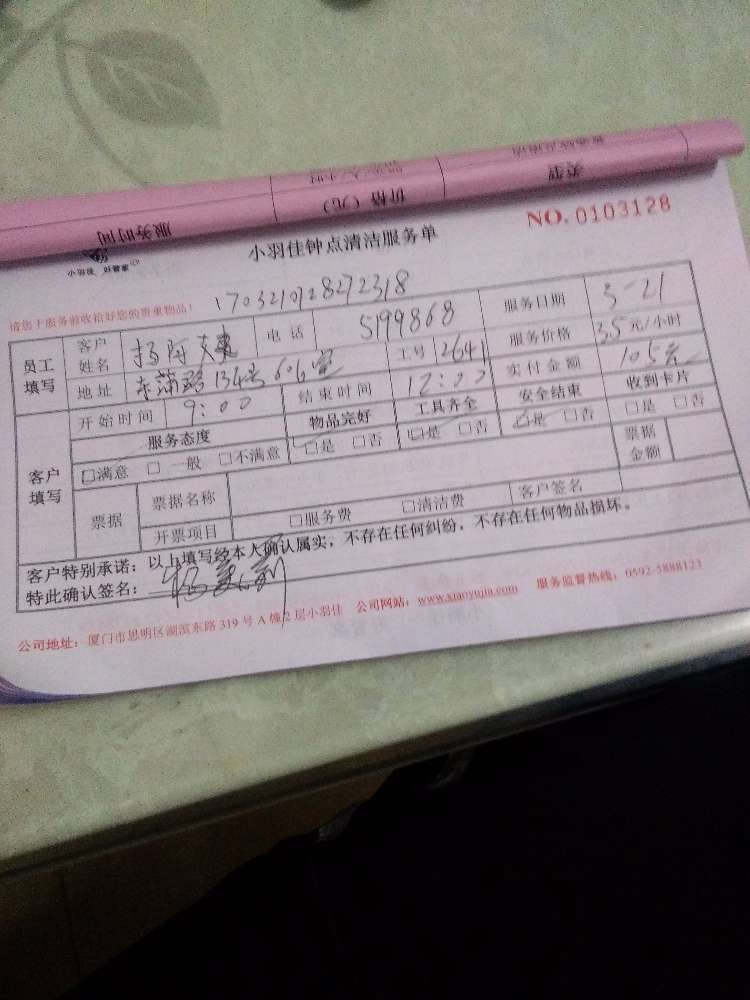 服务时间 价格（元） 类型
小羽佳 好管家
小羽佳钟点清洁服务单
NO. 0103128
请您于服务前收拾好您的贵重物品！
员工填写 客户姓名 杨阿 电话 5199868 服务日期 3-21
地址 东浦路134号606室 工号 2641 服务价格 35元/小时
开始时间 9:00 结束时间 12:00 实付金额 105元
客户填写 服务态度 物品完好 工具齐全 安全结束 收到卡片
□满意 □一般 □不满意 □是 □否 □是 □否 □是 □否 □是 □否
票据 票据名称 票据金额
开票项目 □服务费 □清洁费 客户签名
客户特别承诺：以上填写经本人确认属实，不存在任何纠纷，不存在任何物品损坏。
特此确认签名：
公司地址：厦门市思明区湖滨东路 319 号 A 幢 2 层小羽佳 公司网站：www.xiaoyujia.com 服务监督热线：0592-5888123